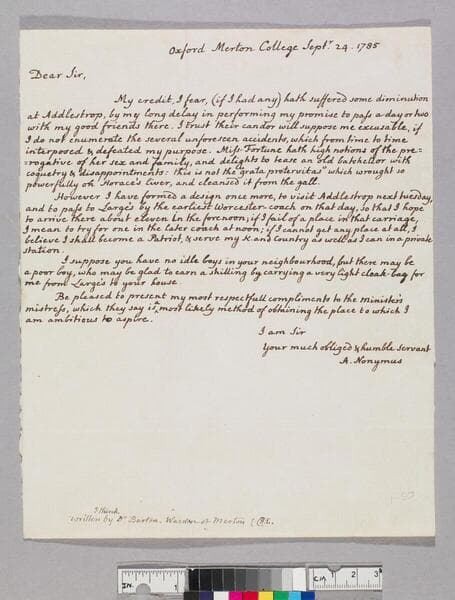 Oxford Merton College Septr. 24. 1785
Dear Sir,
My credit, I fear, (if I had any) hath suffered some diminution
at Addlestrop, by my long delay in performing my promise to pass a day or two
with my good friends there. I trust their candor will suppose me excusable, if
I do not enumerate the several unforeseen accidents, which from time to time
interposed & defeated my purpose. Miss Fortune hath high notions of the pre=
=rogative of her sex and family, and delights to tease an old batchellor with
coquetry & disappointments: this is not the "grata protervitas" which wrought so
powerfully on Horace's liver, and cleansed it from the gall.
However I have formed a design once more, to visit Addlestrop next tuesday,
and to pass to Large's by the earliest Worcester coach on that day, so that I hope
to arrive there about eleven in the forenoon; if I fail of a place in that carriage,
I mean to try for one in the later coach at noon; if I cannot get any place at all, I
believe I shall become a Patriot, & serve my K. and Country as well as I can in a private
station.
I suppose you have no idle boys in your neighbourhood, but there may be
a poor boy, who may be glad to earn a shilling by carrying a very light cloak-bag for
me from Large's to your house.
Be pleased to present my most respectfull compliments to the minister's
mistress, which they say is a most likely method of obtaining the place to which I
am ambitious to aspire.
I am Sir
Your much obliged & humble servant
A. Nonymus
I think
written by Dr Barton. Warden of Merton
IN. 1
CM 1 2 3